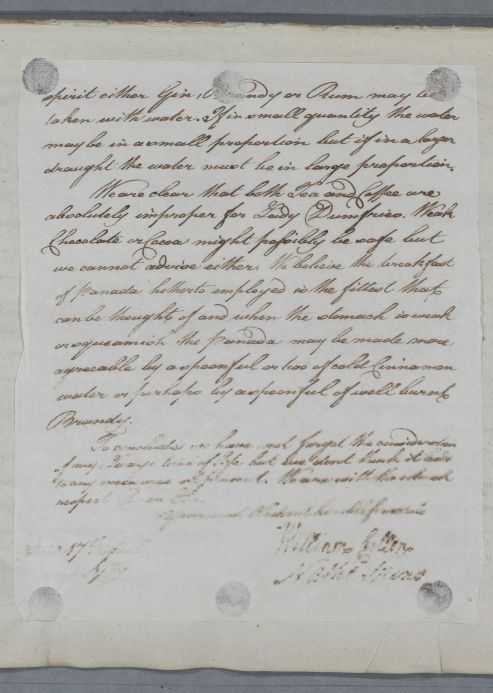 spirit either Gin, Brandy or Rum may be
taken with water. If in small quantity the water
may be in a small proportion but if in a larger
draught the water must be in large proportion.
We are clear that both Tea and Coffee are
absolutely improper for Lady Dumfries. Weak
Chocolate or Cocoa might possibly be safe but
we cannot advise either. We believe the breakfast
of panada hitherto employed is the fittest that
can be thought of and when the stomach is weak
or squeamish the panada may be made more
agreeable by a spoonful or two of cold Cinnamon
water or perhaps by a spoonful of well burnt
Brandy.
To conclude we have not forgot the consideration
of my Ladys time of life but we dont think it
any with the utmost
respect Dear Sir
Your most Obedient humble servants
17
William Cullen